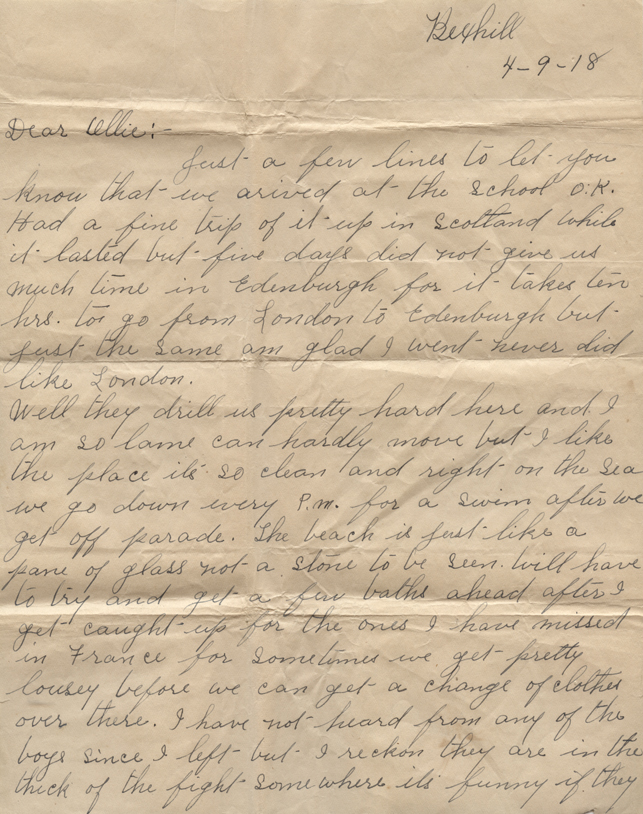 Bexhill
4-9-18
Dear Ollie:-
Just a few lines to let you
know that we arived at the school O.K.
Had a fine trip of it up in Scotland while
it lasted but five days did not give us
much time in Edenburgh for it takes ten
hrs. too go from London to Edenburgh but
just the same am glad I went never did
like London.
Well they drill us pretty hard here and I
am so lame can hardly move but I like
the place its so clean and right on the sea
we go down every P.M. for a swim after we
get off parade. The beach is just like a
pane of glass not a stone to be seen. Will have
to try and get a few baths ahead after I
get caught up for the ones I have missed
in France for sometimes we get pretty
lousey before we can get a change of clothes
over there. I have not heard from any of the
boys since I left but I reckon they are in the
thick of the fight somewhere its funny if they